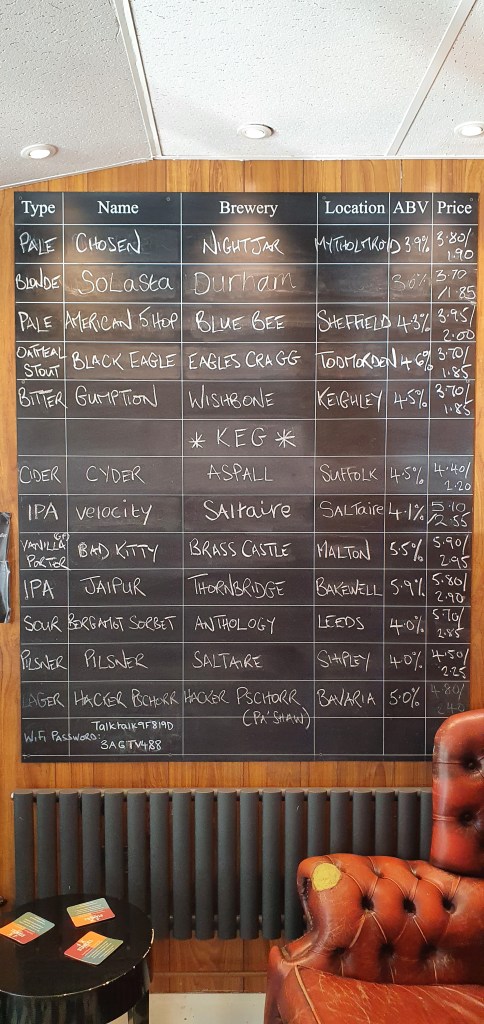 Type Name Brewery Location ABV Price
PALE CHOSEN NIGHTJAR MYTHOLMROYD 3.9% 3.80/1.90
BLONDE SOLASTA Durham 3.70/1.85
PALE AMERICAN 5 HOP BLUE BEE SHEFFIELD 4.3% 3.95/2.00
OATMEAL STOUT BLACK EAGLE EAGLES CRAGG TODMORDEN 4.6% 3.70/1.85
BITTER GUMPTION WISHBONE KEIGHLEY 4.5% 3.70/1.85
* KEG *
CIDER CYDER ASPALL SUFFOLK 4.5% 4.40/2.20
IPA velocity SAltaire SALTaire 4.1% 5.10/2.55
VANILLA PORTER GF BAD KITTY BRASS CASTLE MALTON 5.5% 5.90/2.95
IPA JAIPUR THORNBRIDGE BAKEWELL 5.9% 5.80/2.90
SOUR BERGAMOT SORBET ANTHOLOGY LEEDS 4.0% 5.70/2.85
PILSNER PILSNER SALTAIRE SHIPLEY 4.0% 4.50/2.25
LAGER HACKER PSCHORR HACKER PSCHORR BAVARIA 5.0% 4.80/2.40
(PA'SHAW)
Talktalk9F819D
WiFi PASSWORD:
3AGTV488